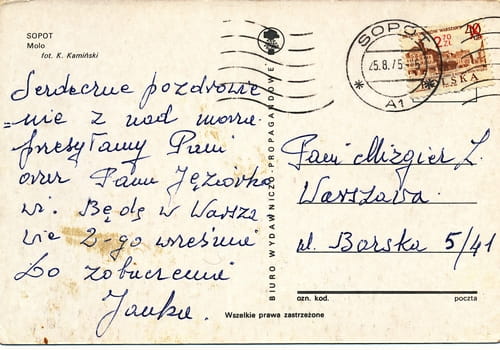 SOPOT
Molo
fot. K. Kamiński
Serdeczne pozdrowie
nie z nad morza
przesyłamy Pani
oraz Panu
wi. Będę w Warsza
wie 2-go września
Do zobaczenia
Janka.
BIURO WYDAWNICZO-PROPAGANDOWE
SOPOT
25.8.75
A1
2,70
ZŁ
40
POLSKA
Pani Mizgier L.
Warszawa
ul. Borska 5/41
ozn. kod.
poczta
Wszelkie prawa zastrzeżone